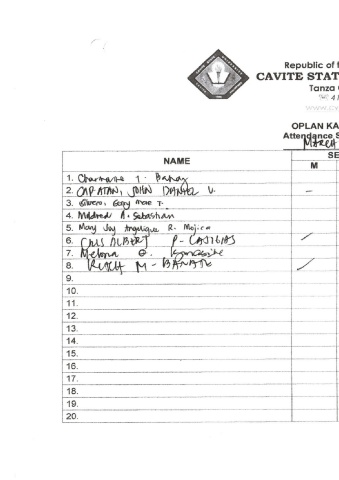 Republic of t
CAVITE STAT
Tanza
OPLAN KA
Attendance S
MARCH
SE
NAME
M
1. Charmaine T.
2. CAPATAN, JOHN DANIEL V.
3. Gerry Mae T.
4. Mildred A. Sebastian
5. Mary Joy Angelique R. Mojica
6. CHRIS ALBERT P. CASTIGAS
7. Melona G.
8. M. BANATE
9.
10.
11.
12.
13.
14.
15.
16.
17.
18.
19.
20.